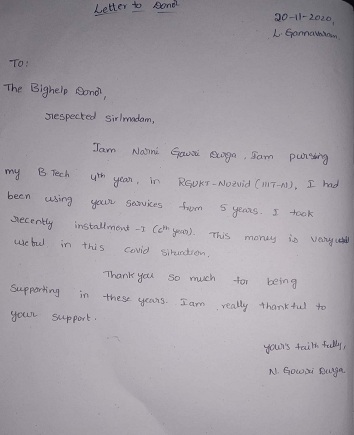 Letter to Donor
20-11-2020,
L. Gannavaram.
To:
The Bighelp Donor,
respected Sir/madam,
Iam Narni Gowri Durga. Iam pursing
my B Tech 4th year, in RGUKT-Nuzvid (IIIT-N), I had
been using your services from 5 years. I took
recently installment -I (6th year). This money is very
useful in this covid situation.
Thank you so much for being
supporting in these years. Iam really thankful to
your support.
yours faithfully,
N. Gowri Durga